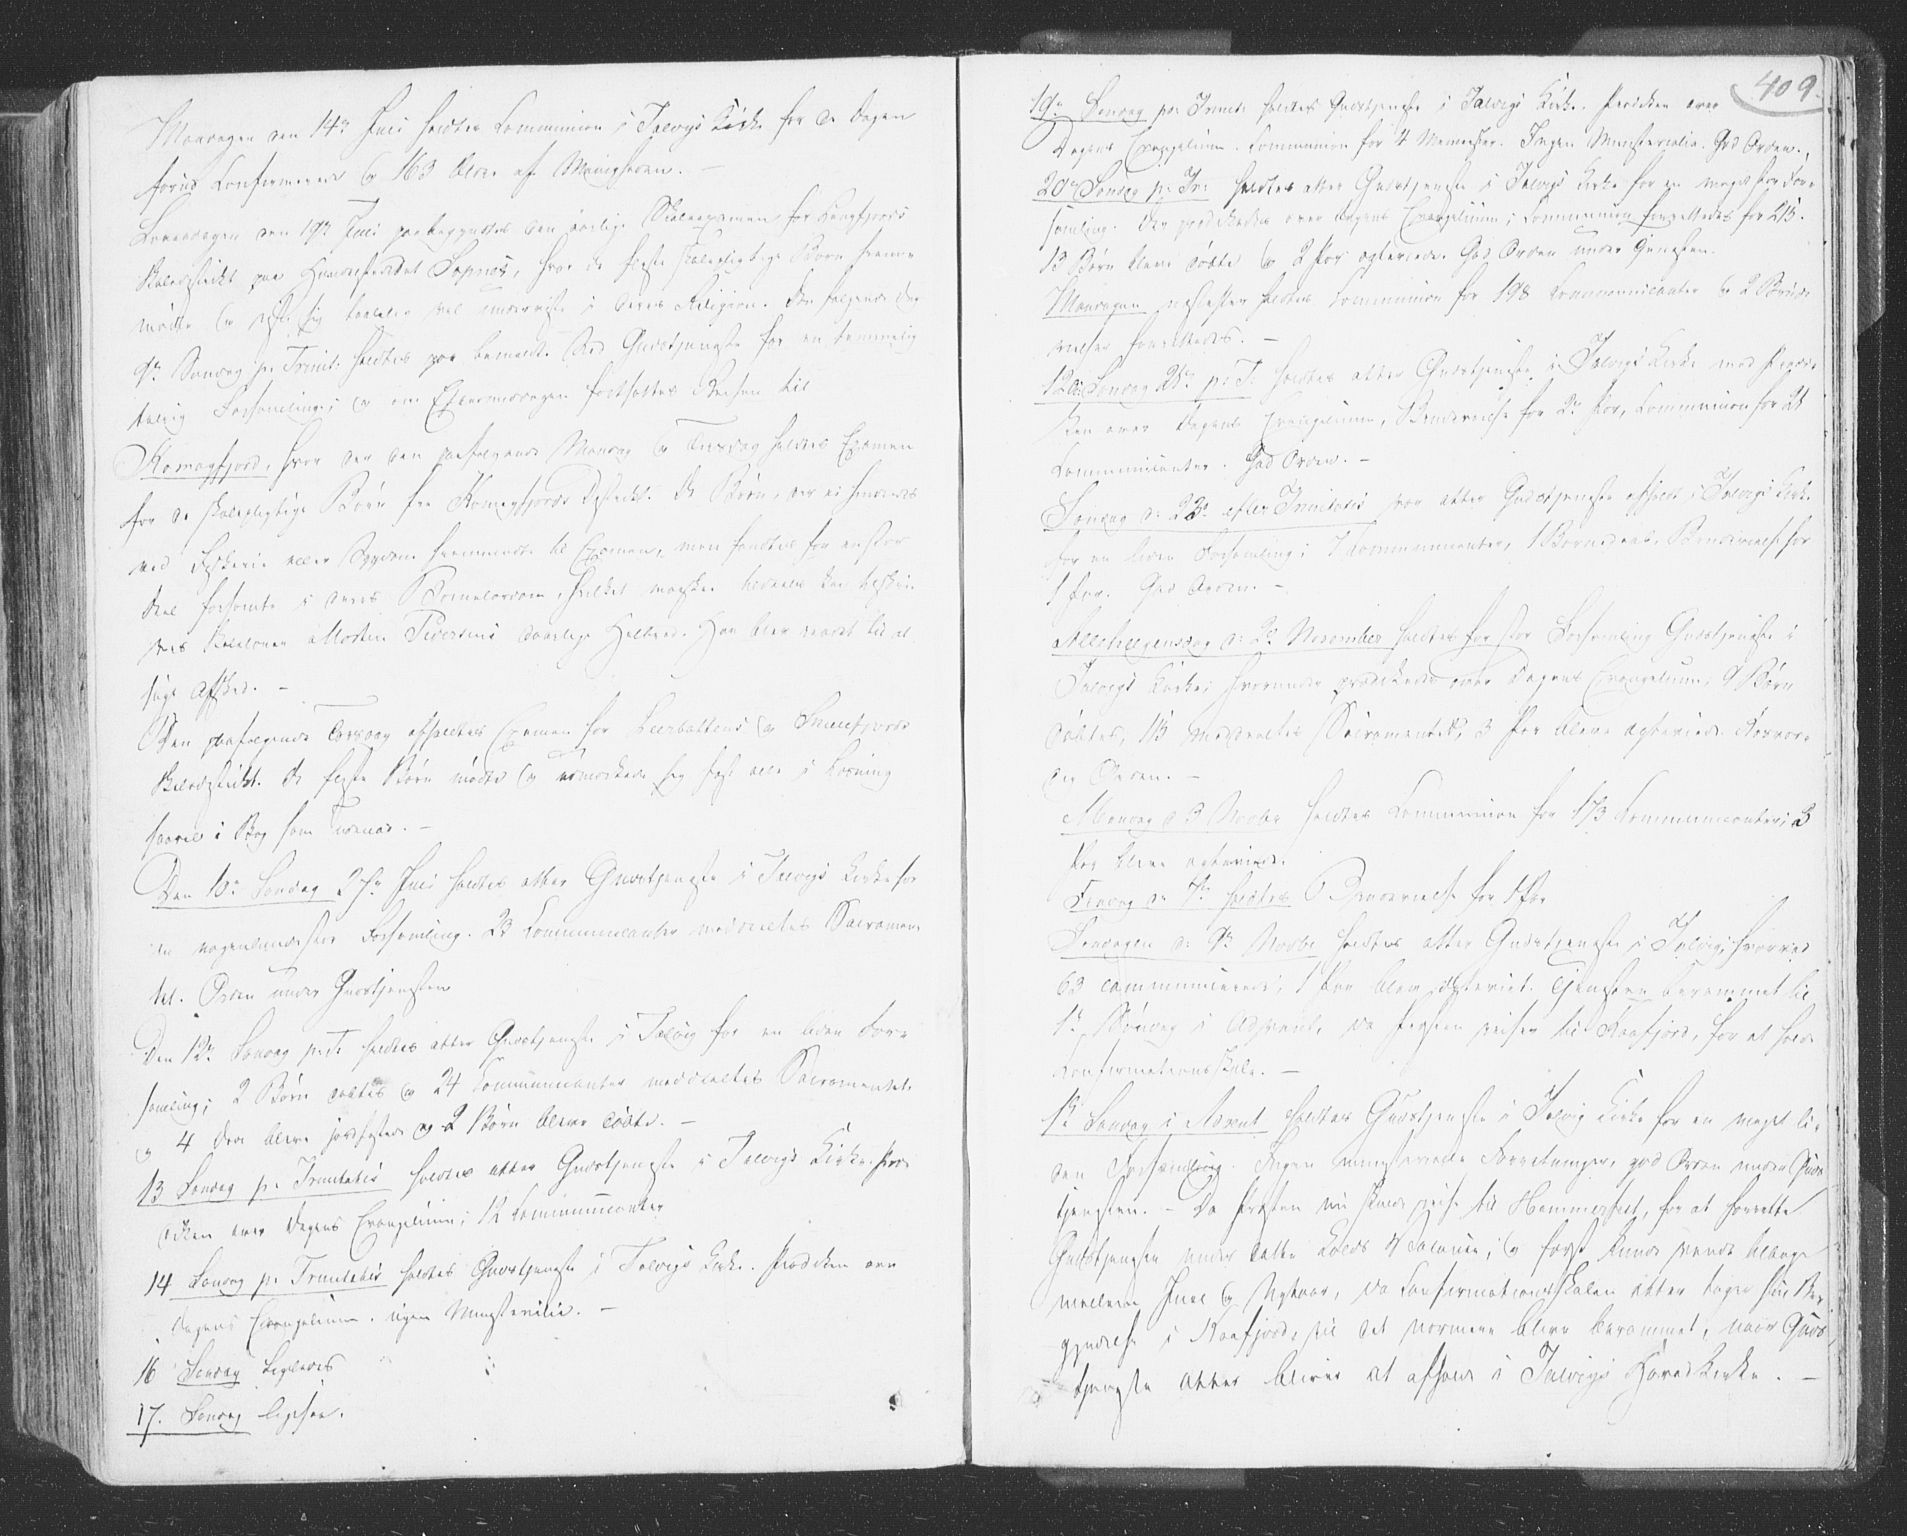 Mandagen den 14de Juli holdtes Communion i Talvigs Kirke for de Dagen
forud Confirmerede og 163 Andre af Menigheden. —
Løverdagen den 19de Juli paabegyndtes den aarlige Skoleexamen for Langfjords
Skoledistrikt paa Hjemmestedet Sopnes, hvor de fleste skolepligtige Børn frem-
mødte og viste sig taalelig vel underviste i deres Religion. Den følgende Dag
9de Søndag p. Trinit. holdtes paa bemeldte Sted Gudstjeneste for en temmelig
talrig Forsamling; og om Eftermiddagen fortsattes Reisen til
Komagfjord, hvor der den paafølgende Mandag og Tirsdag holdtes Examen
for de skolepligtige Børn fra Komagfjords Distrikt. De Børn, der ei hindredes
ved Fiskerie eller Sygdom fremmødte til Examen, men fandtes for en stor
Deel forsømte i deres Børnelærdom, hvilket maaskee
Skolelærer Morten Pedersens daarlige Helbred. Han blev raadet til at
søge Afsked. —
Den paafølgende Torsdag afholdtes Examen for Leerbottens og Smalfjords
Skoledistrikt. De fleste Børn mødte og udmærkede sig fast alle i Læsning
saavel i Bog som Udenad. —
Den 10de Søndag 27de Juli holdtes atter Gudstjeneste i Talvigs Kirke for
en nogenlunde stor Forsamling. 23 Communicanter meddeeltes Sacramen-
tet. Orden under Gudstjenesten
Den 12te Søndag p. T. holdtes atter Gudstjeneste i Talvig for en liden For-
samling; 2 Børn døbtes og 24 Communicanter meddeeltes Sacramentet.
og 4 Døde bleve jordfæstede og 2 Børn bleve døbte. —
13 Søndag p. Trinitatis holdtes atter Gudstjeneste i Talvigs Kirke. Præ-
diken over Dagens Evangelium; 12 Communicanter
14 Søndag p. Trinitatis holdtes Gudstjeneste i Talvigs Kirke. Prædiken over
Dagens Evangelium. ingen Ministerialia. —
16 Søndag ligeledes
17. Søndag ligesaa.
409
19de Søndag p. Trinit. holdtes Gudstjeneste i Talvigs Kirke. Prædiken over
Dagens Evangelium. Communion for 4 Mennesker. Ingen Ministerialia. God Orden.
20de Søndag p. Tr. holdtes atter Gudstjeneste i Talvigs Kirke for en meget stor For-
samling. Der prædikedes over Dagens Evangelium; Communion forrettedes for 213.
13 Børn bleve døbte og 2 Par ægteviede. God Orden under Tjenesten.
Mandagen næstefter holdtes Communion for 198 Communicanter og 2 Brude-
vielser forrettedes. —
Søndag 21de p. T. holdtes atter Gudstjeneste i Talvigs Kirke med Prædi-
ken over Dagens Evangelium, Brudevielse for 2de Par, Communion for 21
Communicanter. God Orden. —
Søndag d. 23de efter Trinitatis var atter Gudstjeneste afholdt i Talvigs Kirke
for en liden Forsamling; 7 Communicanter, 1 Barnedaab, Brudevielse for
1 Par. God Orden. —
Allehelgensdag d. 2de November holdtes for stor Forsamling Gudstjeneste i
Talvigs Kirke; hvorunder prædikedes over Dagens Evangelium, 9 Børn
døbtes, 113 meddeeltes Sacramentet, 3 Par bleve ægteviede. Sædvan-
lig Orden. —
Mandag d. 3 Novbr holdtes Communion for 173 Communicanter; 3
Par bleve ægteviede.
Tirsdag d. 4de holdtes Brudevielse for 1 Par
Søndagen d. 9de Novbr holdtes atter Gudstjeneste i Talvig, hvorved
63 communicerede; 1 Par blev ægteviet. Tjenesten berammet til
1ste Søndag i Advent, da Præsten reiser til Kaafjord, for at holde
Confirmationsskole. —
1ste Søndag i Advent holdtes Gudstjeneste i Talvig Kirke for en meget li-
den Forsamling. Ingen ministerielle Forretninger, god Orden under Guds-
tjenesten. — Da Præsten nu skulde reise til Hammerfest, for at forrette
Gudstjeneste under dette Calds Vacance; og først kunde vende tilbage
mellem Juul og Nytaar, da Confirmationsskolen atter tager sin Be-
gyndelse i Kaafjord, vil det nærmere blive berammet, naar Guds-
tjeneste atter bliver at afholde i Talvigs Hovedkirke. —